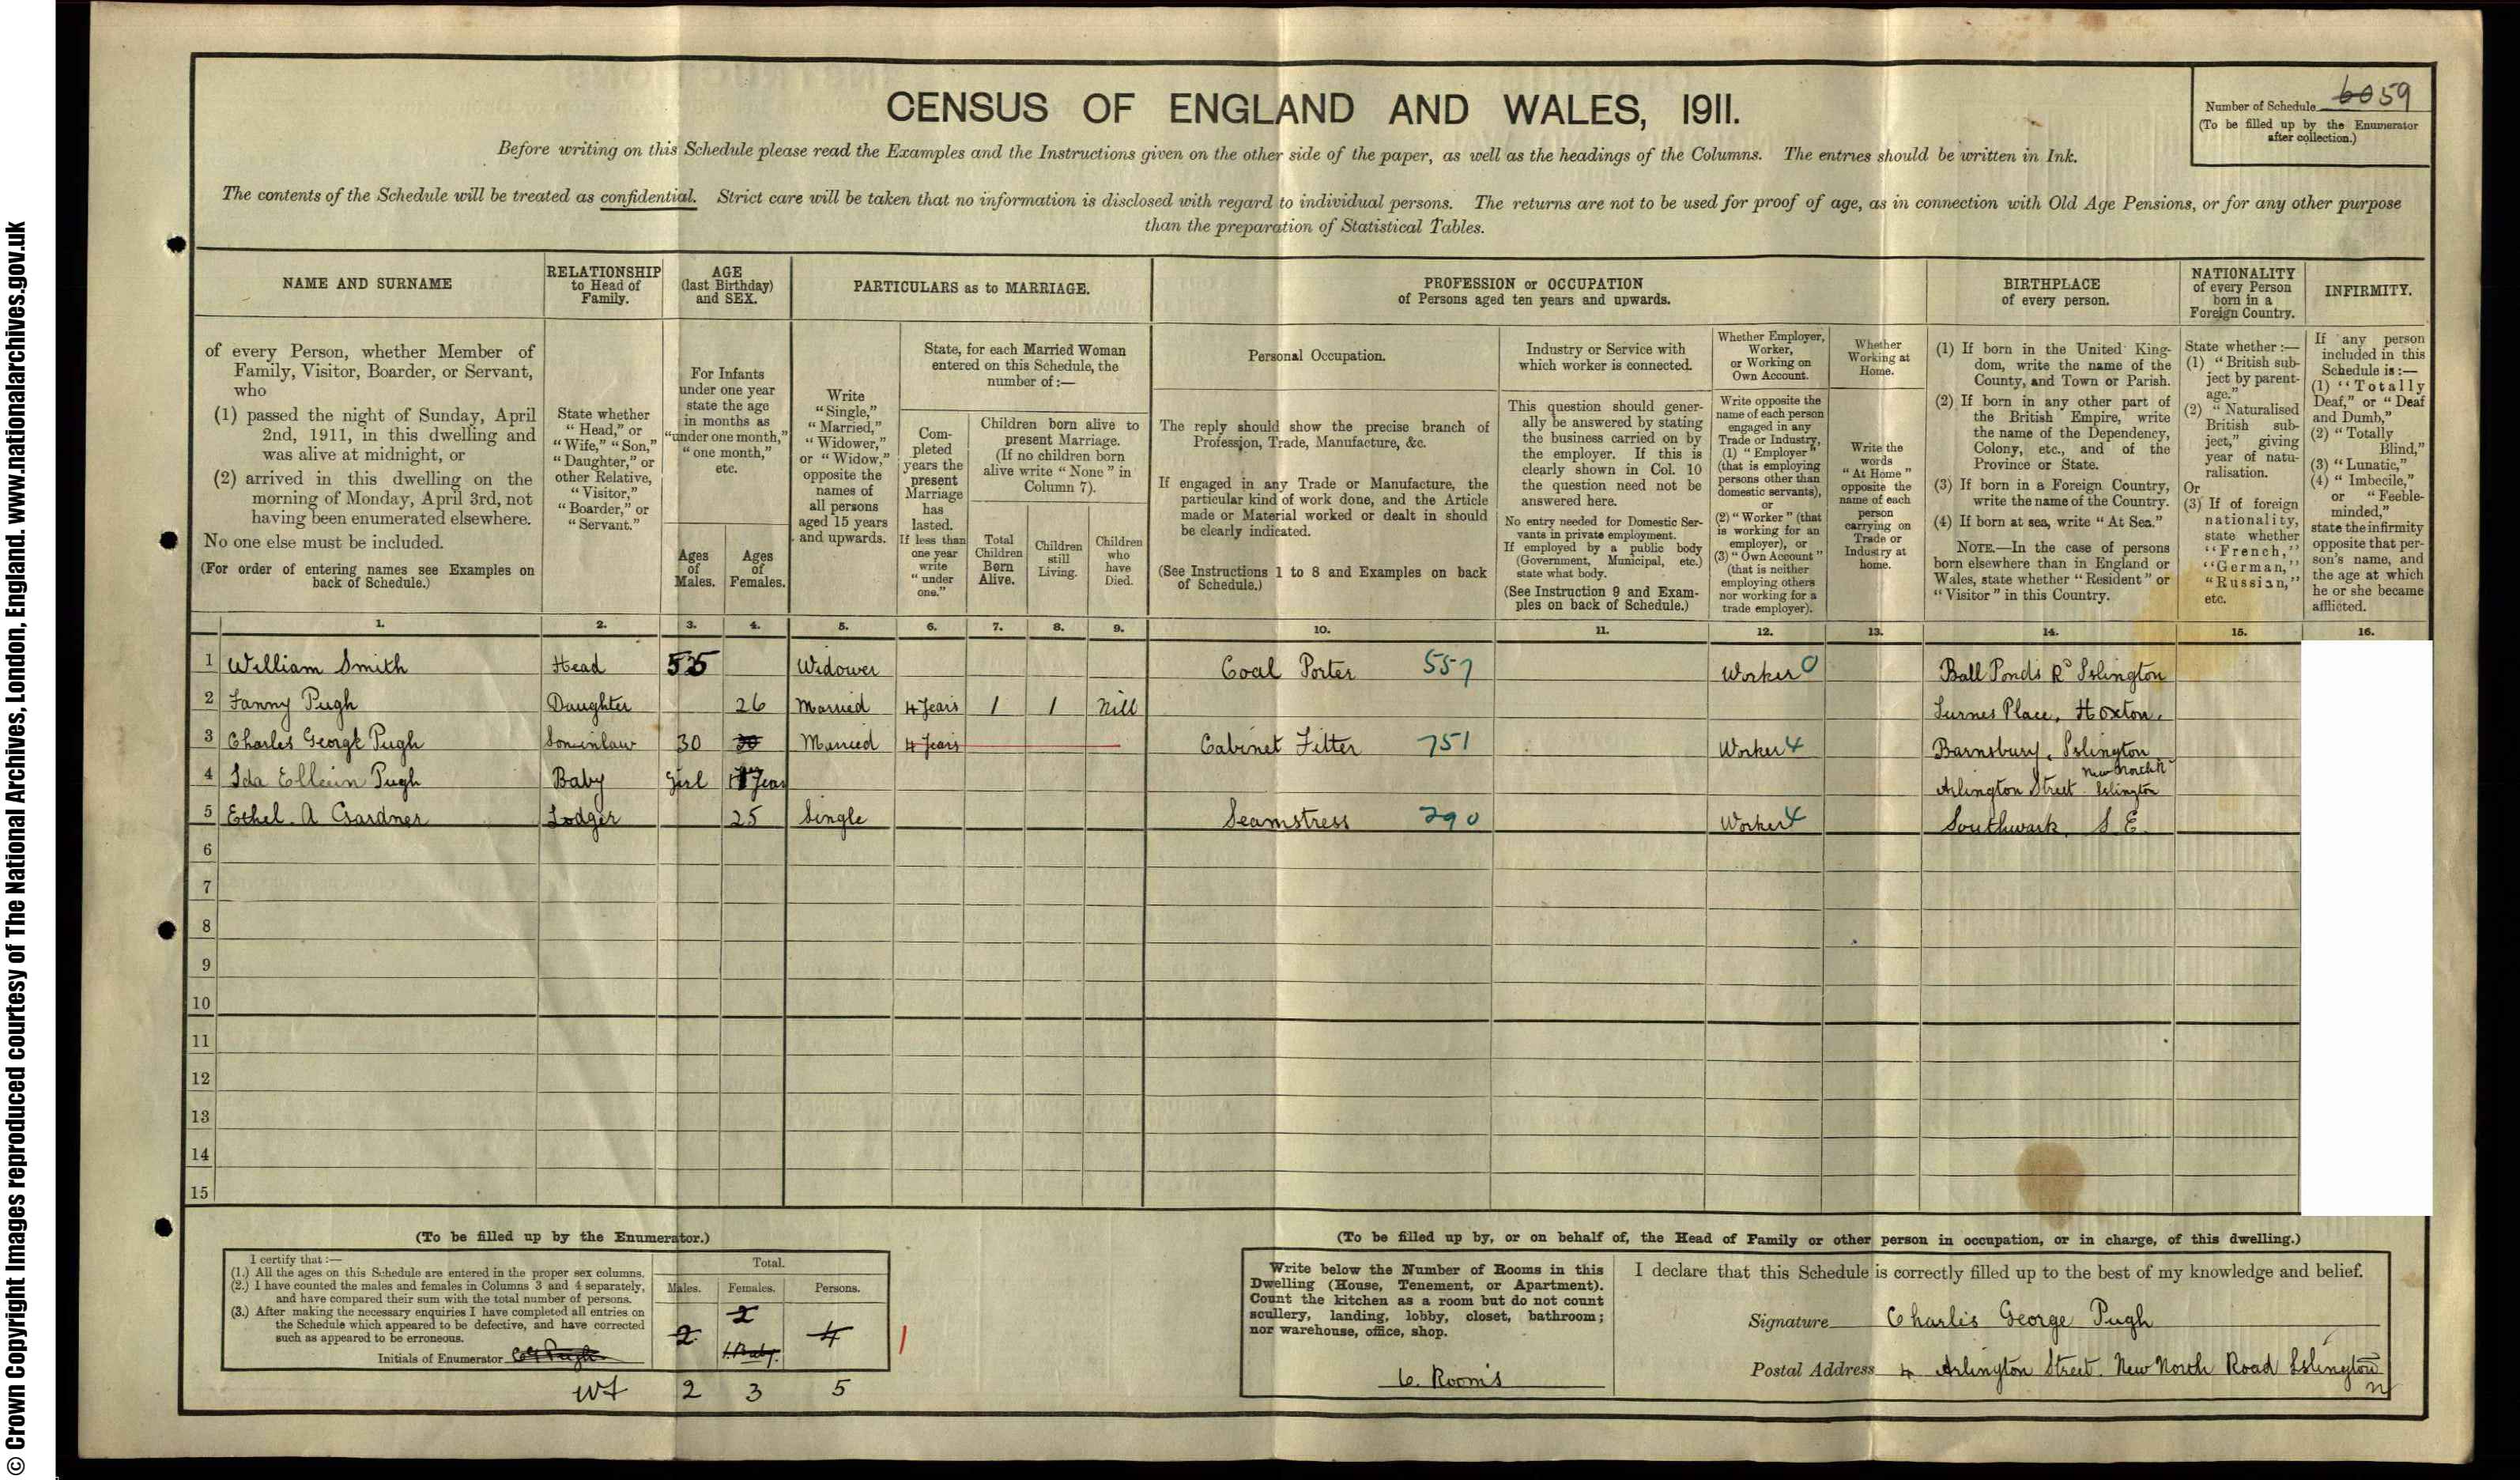 © Crown Copyright Images reproduced courtesy of The National Archives, London, England. www.nationalarchives.gov.uk
CENSUS OF ENGLAND AND WALES, 1911.
Number of Schedule 6059
(To be filled up by the Enumerator
after collection.)
Before writing on this Schedule please read the Examples and the Instructions given on the other side of the paper, as well as the headings of the Columns. The entries should be written in Ink.
The contents of the Schedule will be treated as confidential. Strict care will be taken that no information is disclosed with regard to individual persons. The returns are not to be used for proof of age, as in connection with Old Age Pensions, or for any other purpose
than the preparation of Statistical Tables.
NAME AND SURNAME
of every Person, whether Member of
Family, Visitor, Boarder, or Servant,
who
(1) passed the night of Sunday, April
2nd, 1911, in this dwelling and
was alive at midnight, or
(2) arrived in this dwelling on the
morning of Monday, April 3rd, not
having been enumerated elsewhere.
No one else must be included.
(For order of entering names see Examples on
back of Schedule.)
RELATIONSHIP
to Head of
Family.
State whether
"Head," or
"Wife," "Son,"
"Daughter," or
other Relative,
"Visitor,"
"Boarder," or
"Servant."
AGE
(last Birthday)
and SEX.
For Infants
under one year
state the age
in months as
"under one month,"
"one month,"
etc.
Ages
of
Males.
Ages
of
Females.
PARTICULARS as to MARRIAGE.
Write
"Single,"
"Married,"
"Widower,"
or "Widow,"
opposite the
names of
all persons
aged 15 years
and upwards.
State, for each Married Woman
entered on this Schedule, the
number of:—
Com-
pleted
years the
present
Marriage
has
lasted.
If less than
one year
write
"under
one."
Children born alive to
present Marriage.
(If no children born
alive write "None" in
Column 7).
Total
Children
Born
Alive.
Children
still
Living.
Children
who
have
Died.
PROFESSION or OCCUPATION
of Persons aged ten years and upwards.
Personal Occupation.
The reply should show the precise branch of
Profession, Trade, Manufacture, &c.
If engaged in any Trade or Manufacture, the
particular kind of work done, and the Article
made or Material worked or dealt in should
be clearly indicated.
(See Instructions 1 to 8 and Examples on back
of Schedule.)
Industry or Service with
which worker is connected.
This question should gener-
ally be answered by stating
the business carried on by
the employer. If this is
clearly shown in Col. 10
the question need not be
answered here.
No entry needed for Domestic Ser-
vants in private employment.
If employed by a public body
(Government, Municipal, etc.)
state what body.
(See Instruction 9 and Exam-
ples on back of Schedule.)
Whether Employer,
Worker,
or Working on
Own Account.
Write opposite the
name of each person
engaged in any
Trade or Industry,
(1) "Employer"
(that is employing
persons other than
domestic servants),
or
(2) "Worker" (that
is working for an
employer), or
(3) "Own Account"
(that is neither
employing others
nor working for a
trade employer).
Whether
Working at
Home.
Write the
words
"At Home"
opposite the
name of each
person
carrying on
Trade or
Industry at
home.
BIRTHPLACE
of every person.
(1) If born in the United King-
dom, write the name of the
County, and Town or Parish.
(2) If born in any other part of
the British Empire, write
the name of the Dependency,
Colony, etc., and of the
Province or State.
(3) If born in a Foreign Country,
write the name of the Country.
(4) If born at sea, write "At Sea."
NOTE.—In the case of persons
born elsewhere than in England or
Wales, state whether "Resident" or
"Visitor" in this Country.
NATIONALITY
of every Person
born in a
Foreign Country.
State whether:—
(1) "British sub-
ject by parent-
age."
(2) "Naturalised
British sub-
ject," giving
year of natu-
ralisation.
Or
(3) If of foreign
nationality,
state whether
"French,"
"German,"
"Russian,"
etc.
INFIRMITY.
If any person
included in this
Schedule is:—
(1) "Totally
Deaf," or "Deaf
and Dumb,"
(2) "Totally
Blind,"
(3) "Lunatic,"
(4) "Imbecile,"
or "Feeble-
minded,"
state the infirmity
opposite that per-
son's name, and
the age at which
he or she became
afflicted.
1. 2. 3. 4. 5. 6. 7. 8. 9. 10. 11. 12. 13. 14. 15. 16.
1 William Smith Head 55 Widower Coal Porter 557 Worker 0 Ball Ponds Rd Islington
2 Fanny Pugh Daughter 26 Married 4 Years 1 1 Nill Turnes Place, Hoxton.
3 Charles George Pugh Soninlaw 30 30 Married 4 Years Cabinet Fitter 751 Worker 4 Barnsbury, Islington
4 Ida Ellein Pugh Baby Girl 1 Year Arlington Street New North Rd Islington
5 Ethel. A Gardner Lodger 25 Single Seamstress 390 Worker 4 Southwark S E
6
7
8
9
10
11
12
13
14
15
(To be filled up by the Enumerator.)
I certify that:—
(1.) All the ages on this Schedule are entered in the proper sex columns.
(2.) I have counted the males and females in Columns 3 and 4 separately,
and have compared their sum with the total number of persons.
(3.) After making the necessary enquiries I have completed all entries on
the Schedule which appeared to be defective, and have corrected
such as appeared to be erroneous.
Initials of Enumerator CG Pugh
Total.
Males. Females. Persons.
2 2 4
1. Baby.
2 3 5
(To be filled up by, or on behalf of, the Head of Family or other person in occupation, or in charge, of this dwelling.)
Write below the Number of Rooms in this
Dwelling (House, Tenement, or Apartment).
Count the kitchen as a room but do not count
scullery, landing, lobby, closet, bathroom;
nor warehouse, office, shop.
6. Rooms
I declare that this Schedule is correctly filled up to the best of my knowledge and belief.
Signature Charlis George Pugh
Postal Address 4 Arlington Street. New North Road Islington
N